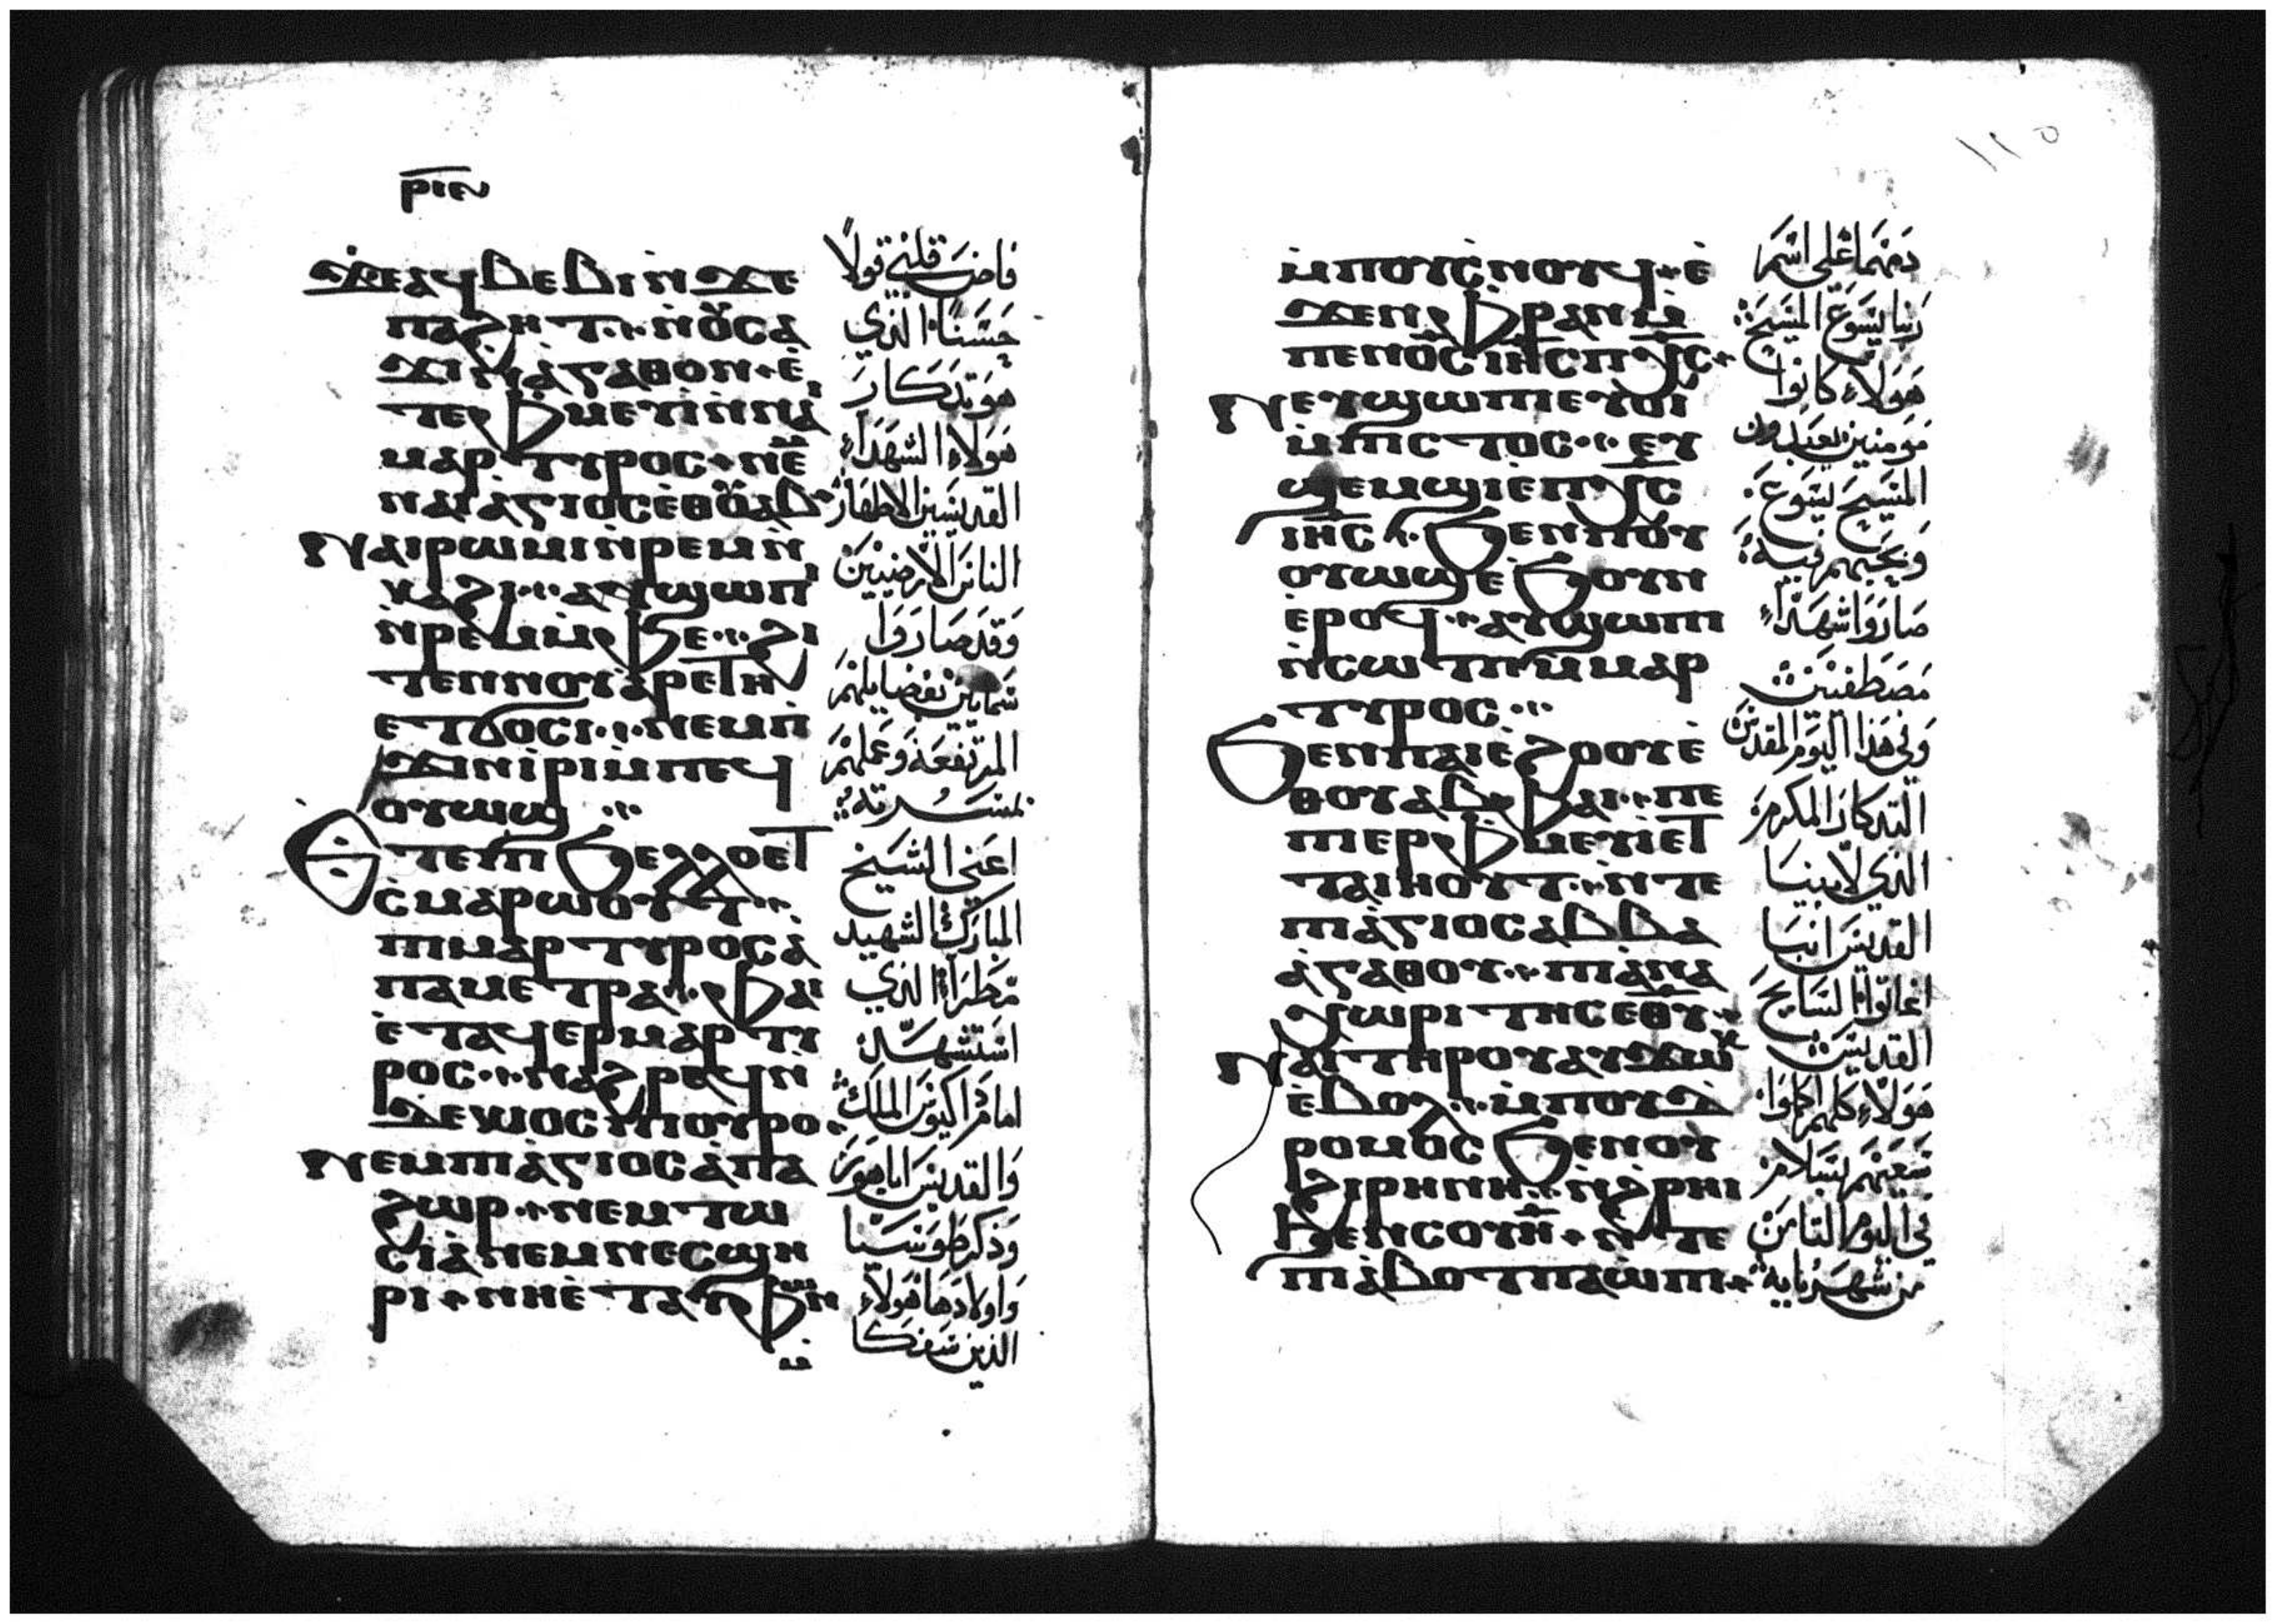 ⲣⲓⲉ
Ϫⲉ ⲁϥⲃⲉⲃⲓ ⲛ̀ϫⲉ
ⲡⲁϩⲏⲧ ⲛ̀ⲟⲩⲥⲁ
ϫⲓ ⲛ̀ⲁ̀ⲅⲁⲑⲟⲛ ⲉ̀
ⲧⲉ ⲫⲙⲉⲩⲓ̀ ⲛ̀ⲛⲓ
ⲙⲁⲣⲧⲩⲣⲟⲥ ⲛⲉ
ⲛⲁⲓⲁ̀ⲅⲓⲟⲥ ⲉⲑⲟⲩⲁⲃ
Ⲛⲁⲓⲣⲱⲙⲓ ⲛ̀ⲣⲉⲙⲛ̀
ⲕⲁϩⲓ ⲁⲩϣⲱⲡⲓ
ⲛ̀ⲣⲉⲙⲙ̀ⲫⲉ ϩⲓ
ⲧⲉⲛ ⲛⲟⲩⲁ̀ⲣⲉⲧⲏ
ⲉⲧϭⲟⲥⲓ ⲛⲉⲙ ⲡ̀
ϫⲓⲛⲓ̀ⲣⲓ ⲙ̀ⲡⲉϥ
ⲟⲩⲱϣ
Ⲉⲧⲉ ⲡⲓϧⲉⲗⲗⲟ ⲉⲧ
ⲥ̀ⲙⲁⲣⲱⲟⲩⲧ
ⲡⲓⲙⲁⲣⲧⲩⲣⲟⲥ ⲁ̀
ⲡⲁ ⲙⲉⲧⲣⲁ ⲫⲁⲓ
ⲉ̀ⲧⲁϥⲉⲣⲙⲁⲣⲧⲓ
ⲣⲟⲥ ⲛⲁϩⲣⲉϥ ⲛ̀
ⲇⲉⲕⲓⲟⲥ ⲡⲓⲟⲩⲣⲟ
Ⲛⲉⲙ ⲡⲓⲁ̀ⲅⲓⲟⲥ ⲁ̀ⲡⲁ
ϩⲱⲣ ⲛⲉⲙ ⲧⲱ
ⲥⲓⲁ̀ ⲛⲉⲙ ⲛⲉⲥϣⲏ
ⲣⲓ ⲛⲏⲉ̀ⲧⲁⲩⲫⲱⲛ
فاض قلبي قولاً
حسناً الذي
هو تدكار
هولاء الشهداء
القديسين الاطهار
الناس الارضيين
وقد صاروا
سمايين بفضايلهم
المرتفعة وعملهم
لمسرته
اعني الشيخ
المبارك الشهيد
مطرا الذي
استشهد
امام داكيوس الملك
والقديس ابا هور
وذكر طوسيا
واولادها هولاء
الذين سفكا
١١٥
ⲙ̀ⲡⲟⲩⲥ̀ⲛⲟϥ ⲉ̀
ϫⲉⲛ ⲫⲣⲁⲛ ⲙ̀
ⲡⲉⲛⲟ̅ⲥ̅ ⲓⲏ̅ⲥ̅ ⲡⲭ̅ⲥ̅
Ⲛⲉⲩϣⲱⲡⲓ ⲉⲩⲟⲓ
ⲙ̀ⲡⲓⲥⲧⲟⲥ ⲉⲩ
ϣⲉⲙϣⲓ ⲉ̀ⲡⲭ̅ⲥ̅
ⲓⲏ̅ⲥ̅ ϧⲉⲛ ⲡⲟⲩ
ⲟⲩⲱϣ ⲉ̀ϧⲟⲩⲛ
ⲉ̀ⲣⲟϥ ⲁⲩϣⲱⲡⲓ
ⲛ̀ⲥⲱⲧⲡ ⲙ̀ⲙⲁⲣ
ⲧⲩⲣⲟⲥ
Ϧⲉⲛ ⲡⲁⲓⲉ̀ϩⲟⲟⲩ ⲉ̀
ⲑⲟⲩⲁⲃ ⲫⲁⲓ ⲡⲉ
ⲡⲓⲉⲣⲫⲙⲉⲩⲓ̀ ⲉⲧ
ⲧⲁⲓⲏⲟⲩⲧ ⲛ̀ⲧⲉ
ⲡⲓⲁ̀ⲅⲓⲟⲥ ⲁⲃⲃⲁ
ⲁ̀ⲅⲁⲑⲟⲩ ⲡⲓⲁ̀ⲛⲁ
ⲭⲱⲣⲓⲧⲏⲥ ⲉⲑⲩ
Ⲛⲁⲓ ⲧⲏⲣⲟⲩ ⲁⲩϫⲱⲕ
ⲉ̀ⲃⲟⲗ ⲙ̀ⲡⲟⲩⲇ̀
ⲣⲟⲙⲟⲥ ϧⲉⲛ ⲟⲩ
ϩⲓⲣⲏⲛⲏ ⲛ̀ϩ̀ⲣⲏⲓ
ϧⲉⲛ ⲥⲟⲩⲏ̅ ⲛ̀ⲧⲉ
ⲡⲓⲁ̀ⲃⲟⲧ ⲡⲁⲱ̀ⲡⲓ
دمهما على اسم
ربنا يسوع المسيح
هولاء كانوا
مومنين يعبدون
المسيح يسوع
وبحبهم فيه
صاروا شهداء
مصطفيين
وفي هذا اليوم المقدس
التدكار المكرم
الذي لابينا
القديس انبا
اغاثوا السايح
القديس
هولاء كلهم اكملوا
سعيهم بسلام
في اليوم الثامن
من شهر بابه